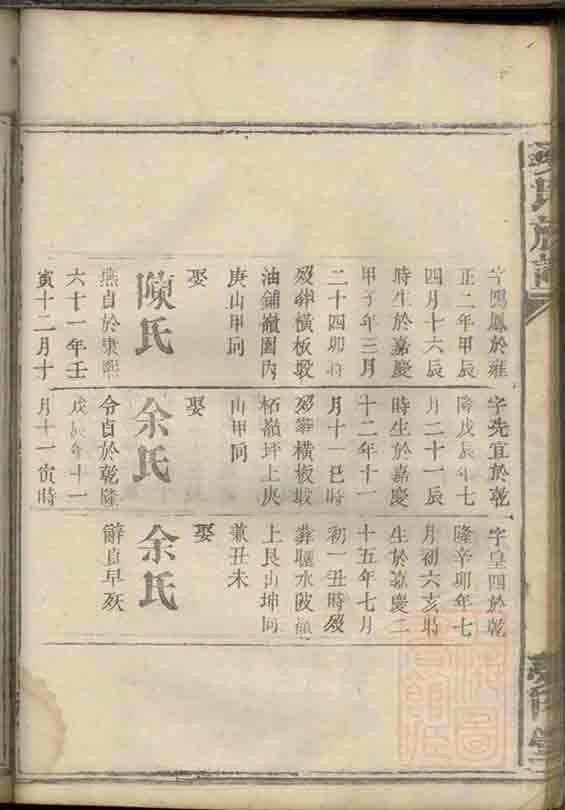 氏族譜
字鳴鳳於雍
正二年甲辰
四月十六辰
時生於嘉慶
甲子年三月
二十四卯時
歿葬橫板墩
油鋪嶺圈內
庚山甲向
娶
陳氏
貞於康熙
六十一年壬
寅十二月十
字先宜於乾
隆戊辰年七
月二十一辰
時生於嘉慶
十二年十一
月十一巳時
歿葬橫板墩
柘嶺坪上庚
山甲向
娶
余氏
令貞於乾隆
戊辰年十一
月十一寅時
字皇四於乾
隆辛卯年七
月初六亥時
生於嘉慶二
十五年七月
初一丑時歿
葬水陂
上艮山坤向
兼丑未
娶
余氏
辭貞早歿
堂